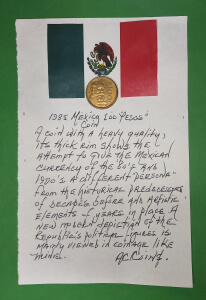 1985 Mexico 100 "Pesos"
Coin
A coin with a heavy quality,
its thick rim shows the
attempt to give the Mexican
currency of the 80's and
1990's a different "persona"
from the historical predecessors
of decades before and artistic
elements of years in place. A
new modern depiction of the
Republic's political figures is
mainly viewed in coinage like
this.